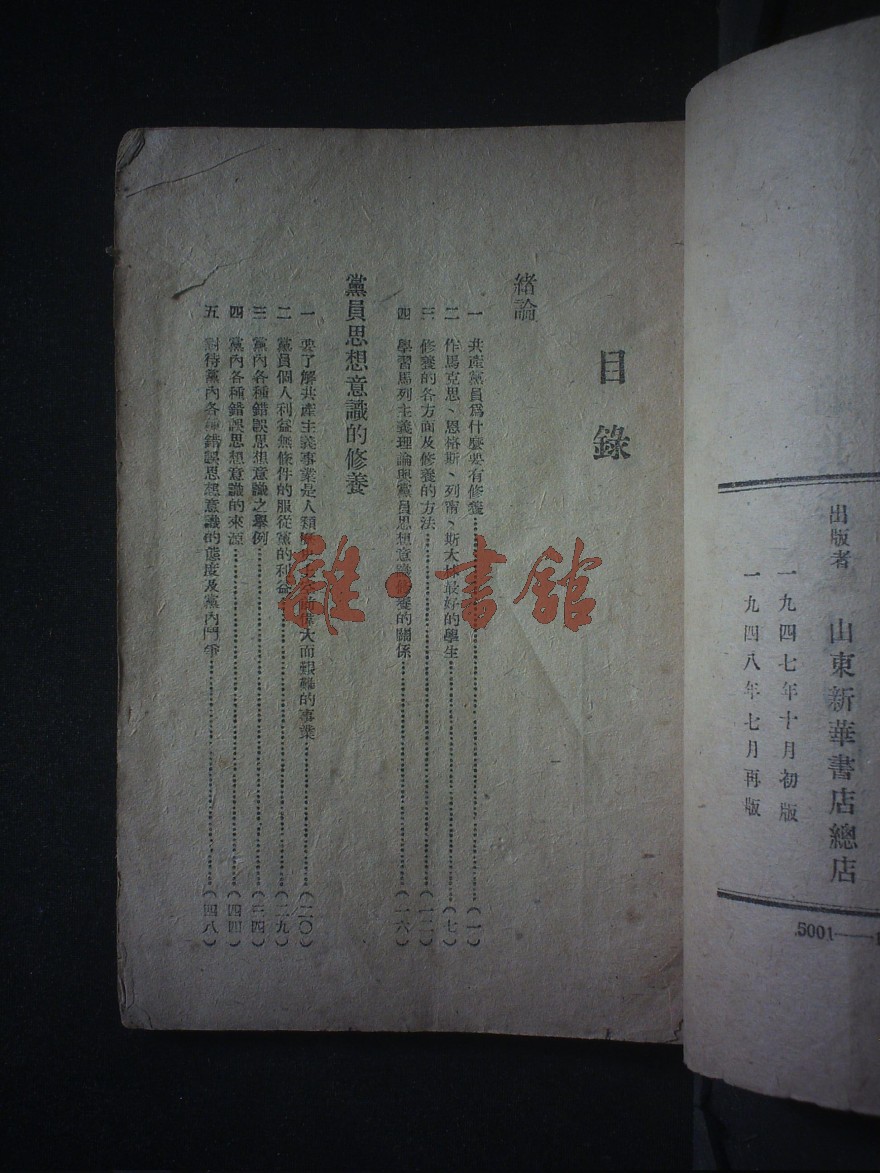 出版者 山東新華書店總店
一九四七年十月初版
一九四八年七月再版
5001——1
目錄
緒論
一 共產黨員爲什麼要有修養……(一)
二 作馬克思、恩格斯、列甯、斯大林最好的學生……(七)
三 修養的各方面及修養的方法……(一二)
四 學習馬列主義理論與黨員思想意識修養的關係……(一六)
黨員思想意識的修養
一 要了解共產主義事業是人類歷史上空前偉大而艱難的事業……(二〇)
二 黨員個人利益無條件的服從黨的利益……(二九)
三 黨內各種錯誤思想意識之舉例……(三四)
四 黨內各種錯誤思想意識的來源……(四四)
五 對待黨內各種錯誤思想意識的態度及黨內鬥爭……(四八)
雜·書館